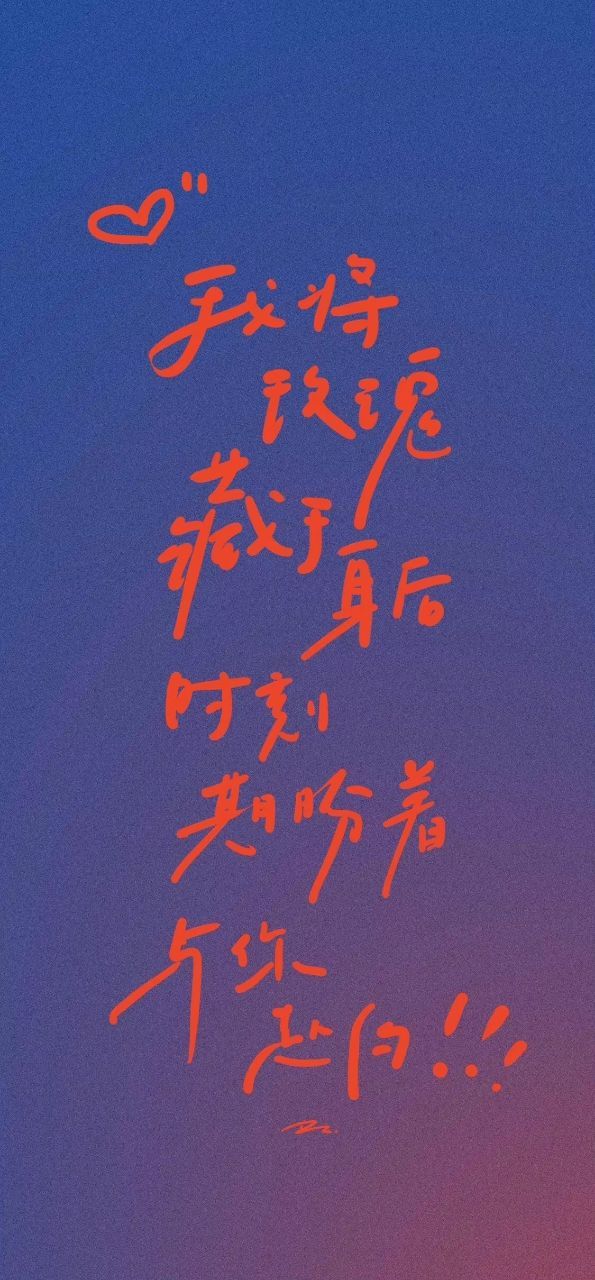 我将
玫瑰
藏于
身后
时刻
期盼着
与你
赴约!!!